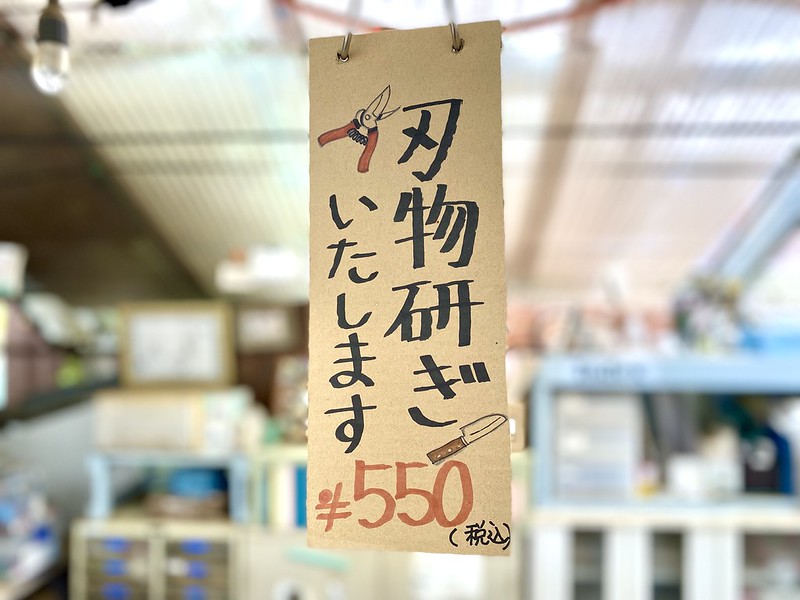 刃物研ぎ
いたします
¥550
(税込)